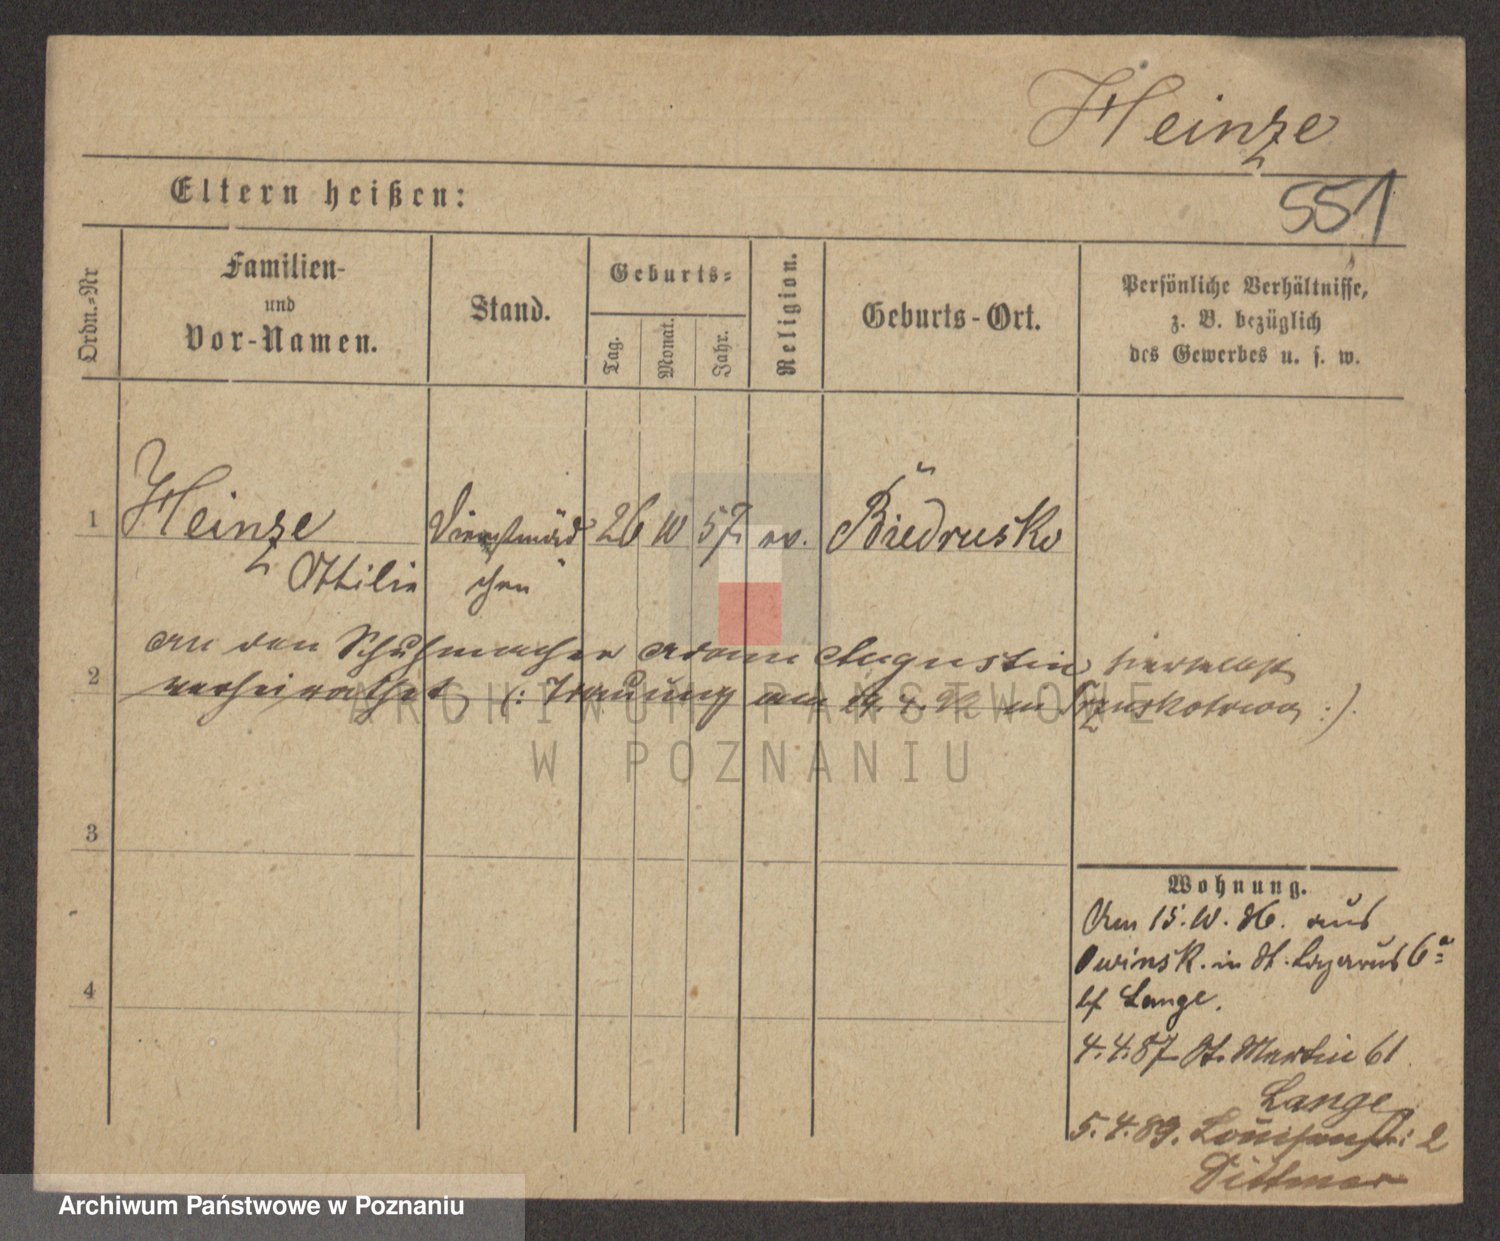 Heinze
551
Eltern heißen:
Ordn.=Nr
Familien-
und
Vor-Namen.
Stand.
Geburts=
Tag.
Monat.
Jahr.
Religion.
Geburts-Ort.
Persönliche Verhältnisse,
z. B. bezüglich
des Gewerbes u. s. w.
1
Heinze
Ottilie
Dienstmäd
chen
26 10 57 ev. Biedrusko
2
an den Schuhmacher Adam Augustin hierselbst
verheirathet (: Trauung am 19. 4. in :).
3
4
Wohnung.
Am 15. 10. 86. aus
Owinsk. in St. Lazarus 6a
bf Lange.
4. 4. 87 St. Martin 61
Lange
5. 4. 89. Louisenstr: 2
Dittmar
ARCHIWUM PAŃSTWOWE
W POZNANIU
Archiwum Państwowe w Poznaniu